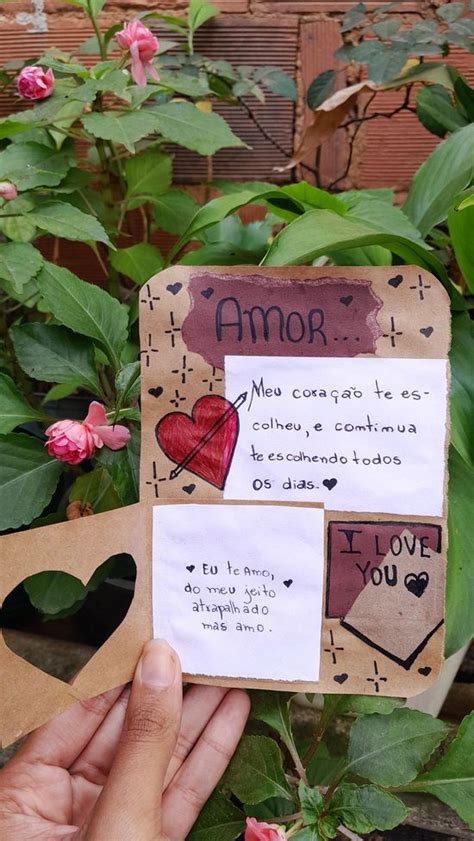 AMOR...
Meu coração te es-
colheu, e continua
te escolhendo todos
os dias.
Eu te amo,
do meu jeito
atrapalhado
mas amo.
I LOVE
YOU